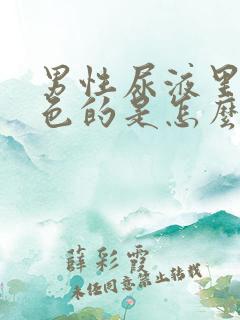 男性尿液呈
色的是怎麽
薛彩霞
未经同意禁止转载